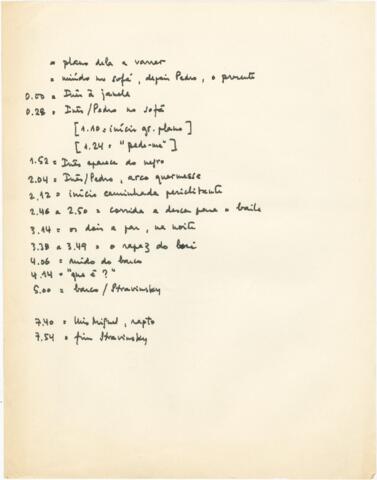 = plano dela a varrer
= miúdo no sofá, depois Pedro, o presente
0.00 = Inês à janela
0.28 = Inês/Pedro no sofá
[1.10 = início gr. plano]
[1.24 = "pede-me"]
1.52 = Inês aparece do negro
2.04 = Inês/Pedro, arco quermesse
2.12 = início caminhada periclitante
2.46 a 2.50 = corrida a descer para o baile
3.14 = os dois a par, na noite
3.38 a 3.49 = o rapaz do
4.06 = ruído do barco
4.14 = "que é?"
5.00 = barco/Stravinsky
7.40 = Luis Miguel, rapto
7.54 = fim Stravinsky